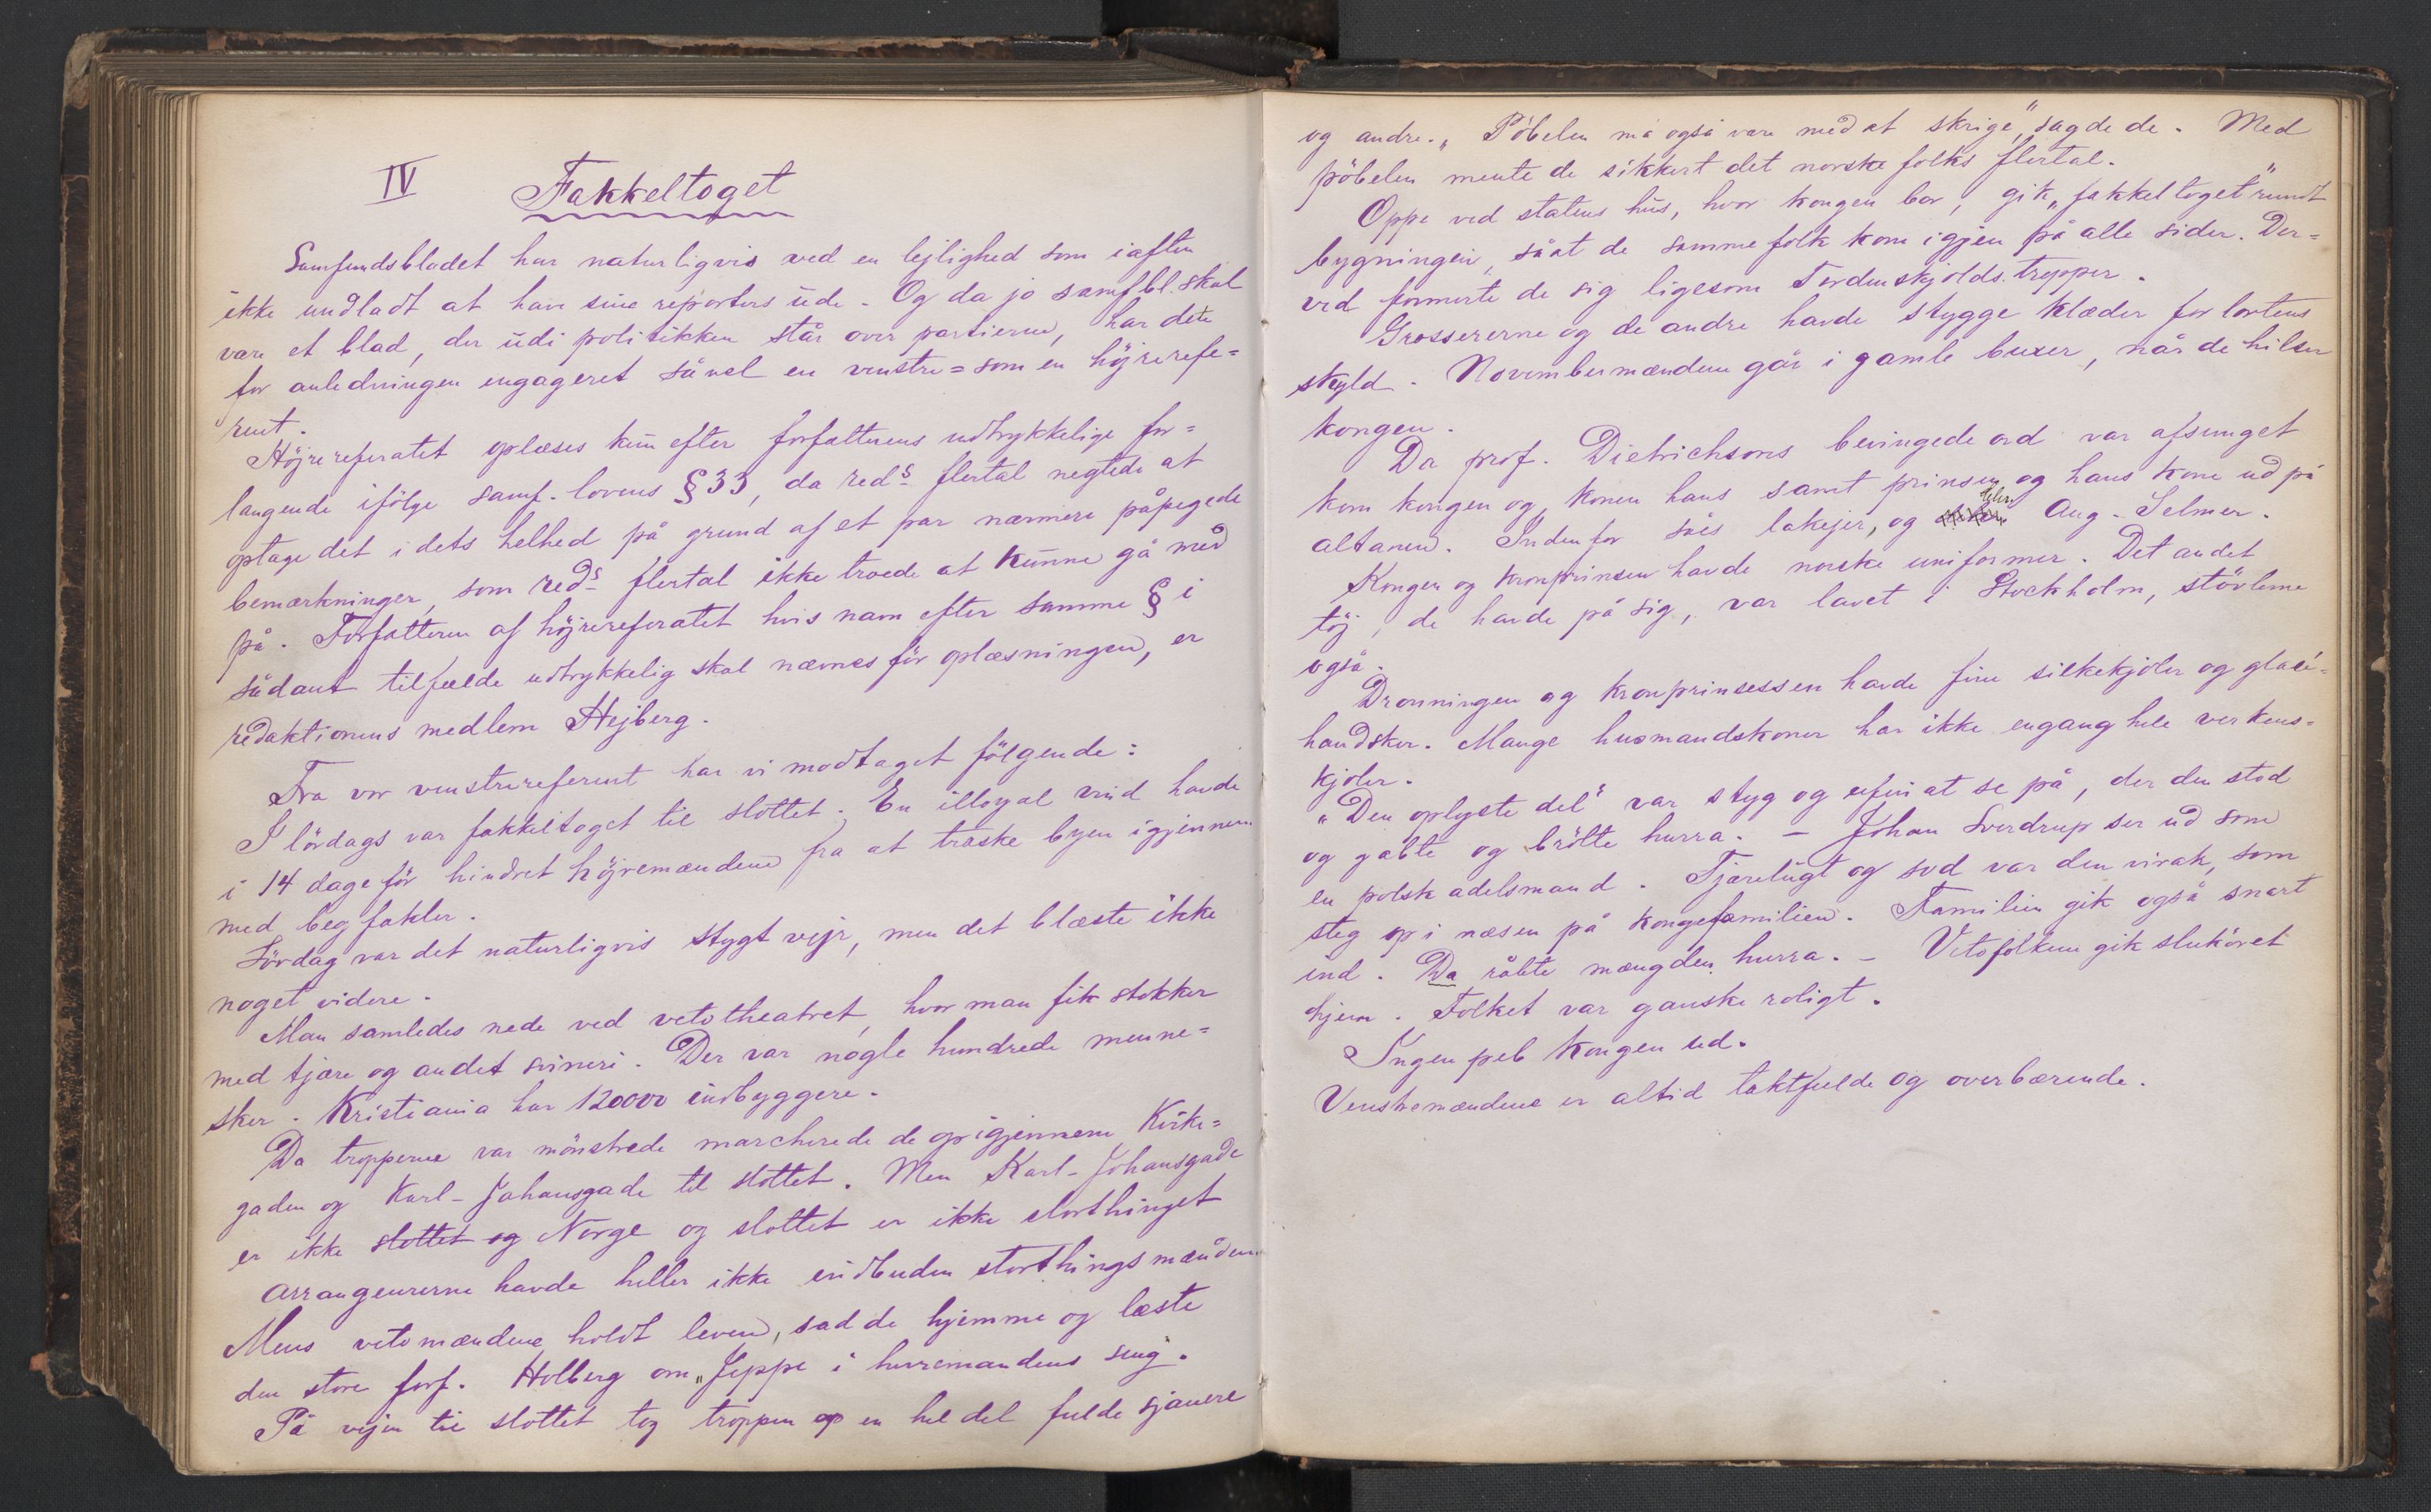 IV Fakkeltoget
Samfundsbladet har naturligvis ved en lejlighed som iaften
ikke undladt at have sine reporters ude. Og da jo samf.bl. skal
være et blad, der udi politikken står over partierne, har dets
for anledningen engageret såvel en venstre= som en höjrerefe=
rent.
Höjrereferatet oplæses kun efter forfatterens udtrykkelige for=
langende ifölge samf.-lovens § 33, da reds flertal negtede at
optage det i dets helhed på grund af et par nærmere påpegede
bemærkninger, som reds flertal ikke troede at kunne gå med
på. Forfatteren af höjrereferatet hvis navn efter samme § i
sådant tilfælde udtrykkelig skal nævnes för oplæsningen, er
redaktionens medlem Hejberg.
Fra vor venstrereferent har vi modtaget fölgende:
I lördags var fakkeltoget til slottet. En illoyal vind havde
i 14 dage för hindret höjremændene fra at traske byen igjennem
med begfakler.
Lördag var det naturligvis stygt vejr, men det blæste ikke
noget videre.
Man samledes nede ved vetotheatret, hvor man fik stokker
med tjære og andet svineri. Der var nogle hundrede menne=
sker. Kristiania har 120000 indbyggere.
Da tropperne var mönstrede marcherede de op igjennem Kirke=
gaden og Karl-Johansgade til slottet. Men Karl-Johansgade
er ikke slottet og Norge og slottet er ikke storthinget
Arrangeurerne havde heller ikke indbuden storthingsmændene
Mens vetomændene holdt leven, sad de hjemme og læste
den store forf. Holberg om „Jeppe i herremandens seng".
På vejen til slottet tog troppen op en hel del fulde sjauere
og andre. „Pöbelen må også være med at skrige", sagde de. Med
pöbelen mente de sikkert det norske folks flertal.
Oppe ved statens hus, hvor kongen bor, gik „fakkeltoget" rundt
bygningen, såat de samme folk kom igjen på alle sider. Der=
ved formerte de sig ligesom Tordenskjolds tropper.
Grossererne og de andre havde stygge klæder for lortens
skyld. Novembermændene går i gamle buxer, når de hilser
kongen.
Da prof. Dietrichsons bevingede ord var afsunget
kom kongen og konen hans samt prinsen og hans kone ud på
altanen. Indenfor såes lakejer, og Aug. Selmer.
Kongen og kronprinsen havde norske uniformer. Det andet
töj, de havde på sig, var lavet i Stockholm, stövlerne
også.
Dronningen og kronprinsessen havde fine silkekjoler og glacé-
handsker. Mange husmandskoner har ikke engang hele verkens-
kjoler.
„Den oplyste del" var styg og ufin at se på, der den stod
og gabte og brölte hurra. — Johan Sverdrup ser ud som
en polsk adelsmand. Tjærelugt og sod var den virak, som
steg op i næsen på kongefamilien. Familien gik også snart
ind. Da råbte mængden hurra. — Vetofolkene gik slukóret
hjem. Folket var ganske roligt.
Ingen peb kongen ud.
Venstremændene er altid taktfulde og overbærende.